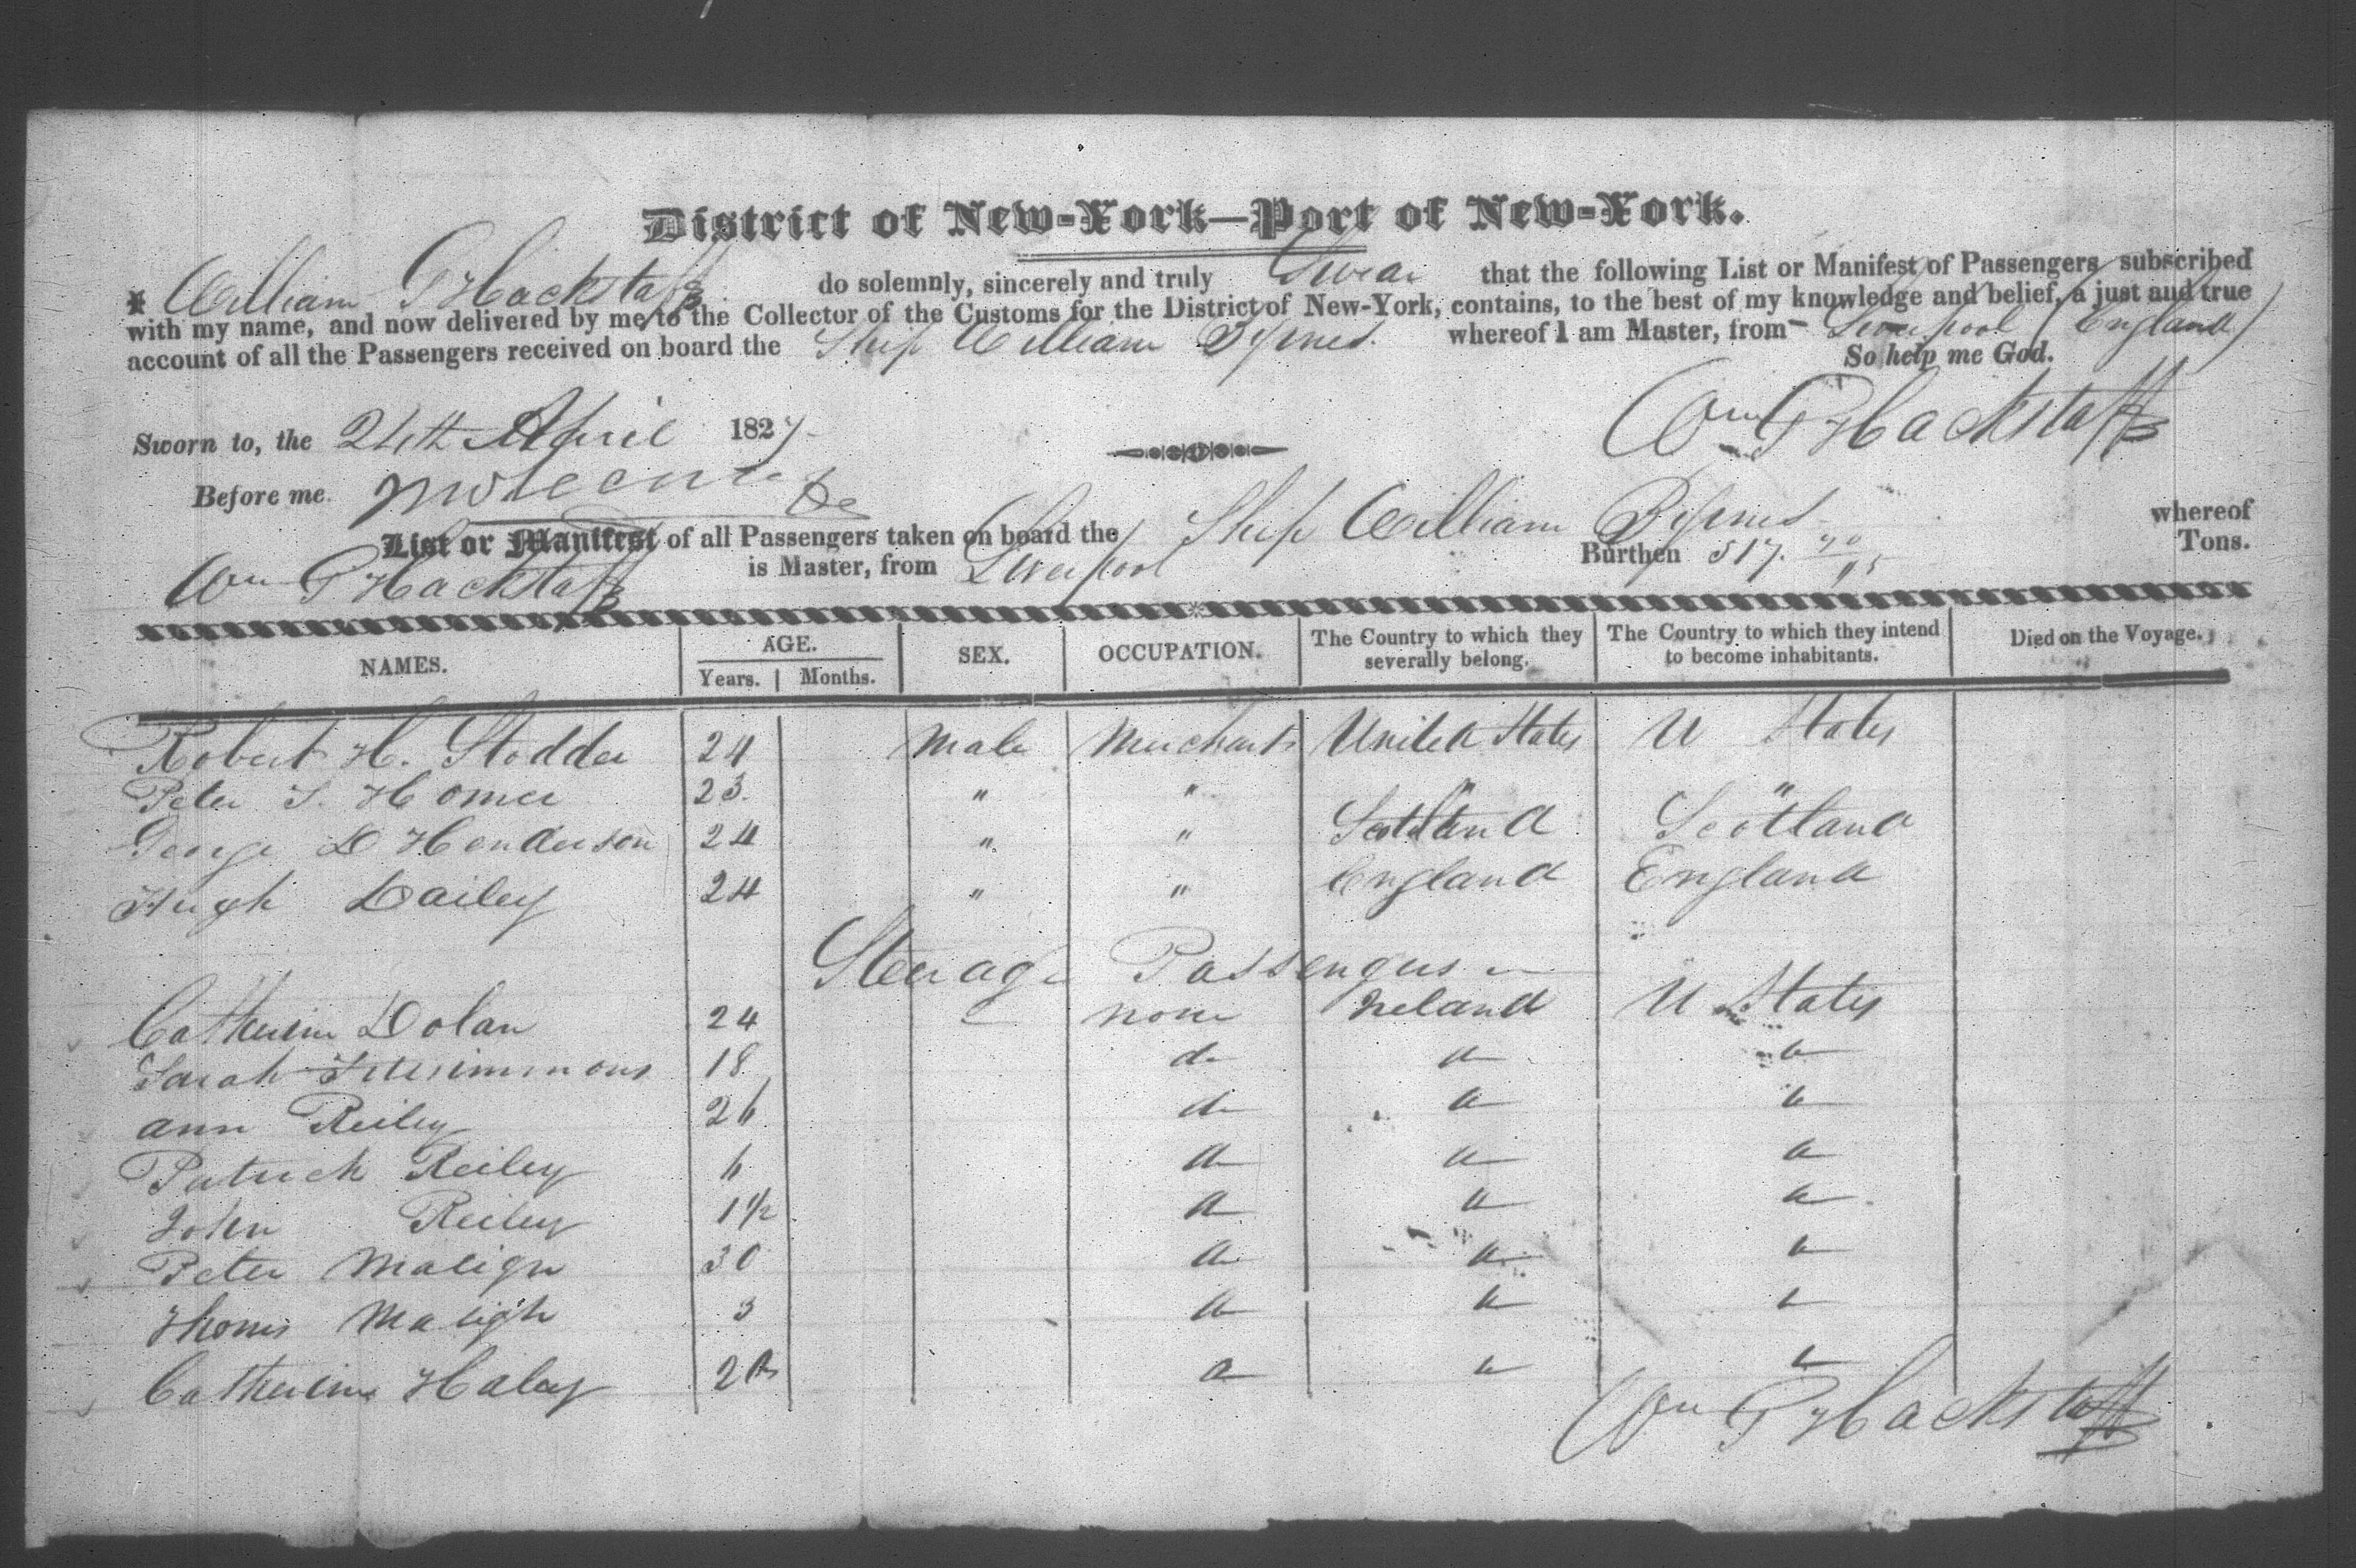 District of New-York—Port of New-York.
I William G Hackstaff do solemnly, sincerely and truly Swear that the following List or Manifest of Passengers subscribed
with my name, and now delivered by me to the Collector of the Customs for the District of New-York, contains, to the best of my knowledge and belief, a just and true
account of all the Passengers received on board the Ship William Byrnes. whereof I am Master, from Liverpool (England)
So help me God.
Wm G Hackstaff
Sworn to, the 24th April 1827.
Before me
List or Manifest of all Passengers taken on board the Ship William Byrnes whereof
Wm G Hackstaff is Master, from Liverpool Burthen 517. 90/95 Tons.
NAMES. AGE. SEX. OCCUPATION. The Country to which they severally belong. The Country to which they intend to become inhabitants. Died on the Voyage.
Years. Months.
Robert H. Stodder 24 Male Merchants United States U States
Peter S. Homer 23. " " " "
George D Henderson 24 " " Scotland Scotland
Hugh Dailey 24 " " England England
Steerage Passengers
Catherine Dolan 24 none Ireland U States
Sarah Fitzsimmons 18 do do do
Ann Reiley 26 do do do
Patrick Reiley 6 do do do
John Reiley 1 1/2 do do do
Peter Malign 30 do do do
Thomas Maligh 3 do do do
Catherine Haley do do do
Wm G Hackstaff